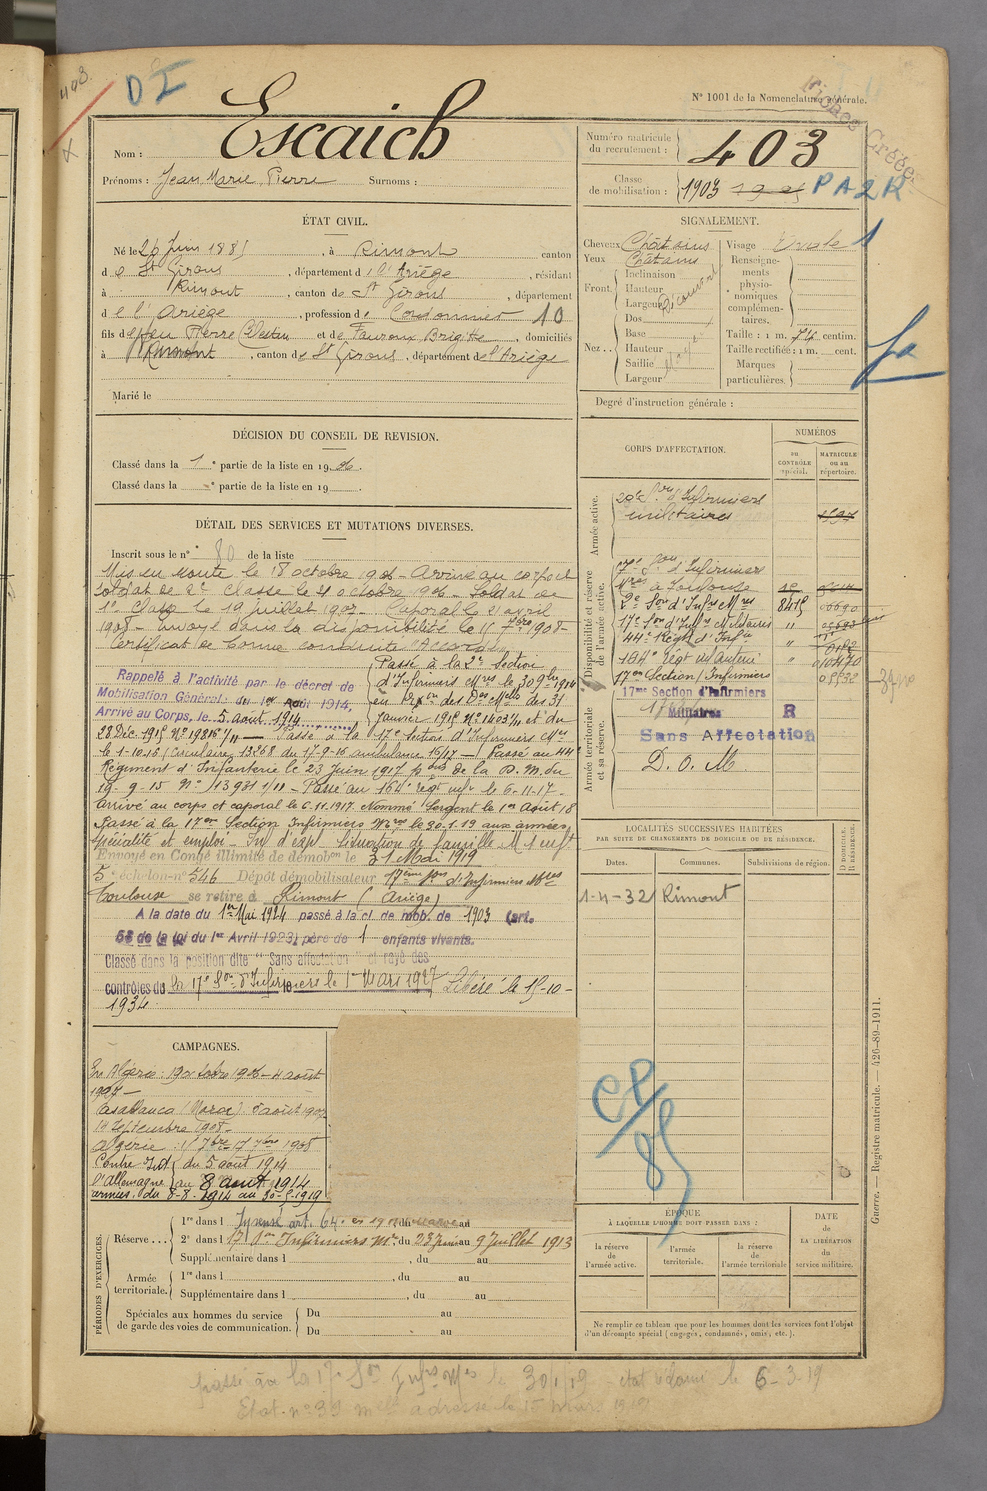 403.
D I
N° 1001 de la Nomenclature générale.
Fiches Créées
Nom : Escaich
Prénoms : Jean Marie Pierre Surnoms :
Numéro matricule du recrutement : 403
Classe de mobilisation : 1903
PA2R
ÉTAT CIVIL.
Né le 26 Juin 188 , à Rimont canton
de St Girons , département de l'Ariège , résidant
à Rimont , canton de St Girons , département
de l'Ariège , profession de Cordonnier 10
fils de feu Pierre Célestin et de Brigitte , domiciliés
à Rimont , canton de St Girons , département de l'Ariège
Marié le
SIGNALEMENT.
Cheveux Châtains
Yeux Châtains
Front.
Inclinaison
Hauteur
Largeur
Découvert
Nez..
Dos
Base
Hauteur
Saillie
Largeur
Moyen
Visage Ovale
Renseignements physionomiques complémentaires.
Taille : 1 m. 74 centim.
Taille rectifiée : 1 m. cent.
Marques particulières.
Degré d'instruction générale :
DÉCISION DU CONSEIL DE REVISION.
Classé dans la 1e partie de la liste en 1906.
Classé dans la e partie de la liste en 19
DÉTAIL DES SERVICES ET MUTATIONS DIVERSES.
Inscrit sous le n° 80 de la liste
Mis en route le 8 octobre 1906 - Arrivé au corps et
soldat de 2e classe le octobre 1906 - Soldat de
1e classe le 19 juillet 1907 - Caporal le avril
1908 - envoyé dans la disponibilité le 7bre 1908 -
Certificat de bonne conduite Accordé
Rappelé à l'activité par le décret de
Mobilisation Générale du 1er Août 1914,
Arrivé au Corps, le 5 août 1914
Passé à la 2e Section
d'Infirmiers Mres le 30 9bre 1914
en on des Des Melle des 31
Janvier 1915 N° 1403 1/11 et du
28 Déc. 1915 N° 19816 1/11 - Passé à la 17e Section d'Infirmiers Mres
le 1-10-16 (Circulaire 13268 du 17-9-16 ambulance 16/17 - Passé au 44e
Régiment d'Infanterie le 23 Juin 1917 pon de la D. M. du
19-9-15 N° 13931 1/11 - Passé au 164e régt infie le 6-11-17 -
Arrivé au corps et caporal le 6.11.1917. Nommé Sergent le 1er Août 18
Passé à la 17em Section Infirmiers Mres le 30-1-19 aux armées
spécialité et emploi - Inf d'expl - Situation de famille M 1 enft
Envoyé en Congé illimité de démobon le 31 Mai 1919
5e échelon n° 546 Dépôt démobilisateur 17ème Son d'Infirmiers Mres
Toulouse se retire à Rimont (Ariège)
A la date du 1er Mai 1924 passé à la cl. de mob. de 1903 (art.
58 de la loi du 1er Avril 1923) père de 1 enfants vivants.
Classé dans la position dite "Sans affectation" et rayé des
contrôles de la 17e Son d'Infirmiers le 1er Mars 1927 Libéré le 15-10-
1934
CORPS D'AFFECTATION.
NUMÉROS
AU CONTRÔLE spécial.
MATRICULE ou au répertoire.
Armée active.
Son d'Infirmiers
militaires
Disponibilité et réserve de l'armée active.
17e Son d'Infirmiers
Mres à Toulouse
2e Son d'Infrs Mres 8415 00690
17e Son d'Infrs Militaires "
44e Régt d'Infie
164e régt infanterie " 010470
17em Section Infirmiers
Armée territoriale et sa réserve.
17me Section d'Infirmiers
Militaires R
Sans Affectation
D. O. M
LOCALITÉS SUCCESSIVES HABITÉES
PAR SUITE DE CHANGEMENTS DE DOMICILE OU DE RÉSIDENCE.
Dates. Communes. Subdivisions de région. D DOMICILE. R RÉSIDENCE.
1-4-32 Rimont
CP/85
CAMPAGNES.
En Algérie : octobre 1906 - 4 août
1907 -
Casablanca (Maroc) 5 août 1907
14 Septembre 1908 -
Algérie : 1908
Contre du 5 août 1914
l'Allemagne au 8 août 1914
armées. du 8-8-1914 au 30-5-1919
PÉRIODES D'EXERCICES.
Réserve...
1re dans l
2e dans l 17e Son Infirmiers Mres du 23 Juin au 9 Juillet 1913
Supplémentaire dans l , du au
Armée territoriale.
1re dans l , du au
Supplémentaire dans l , du au
Spéciales aux hommes du service de garde des voies de communication.
Du au
Du au
ÉPOQUE
À LAQUELLE L'HOMME DOIT PASSER DANS :
la réserve de l'armée active.
l'armée territoriale.
la réserve de l'armée territoriale
DATE DE LA LIBÉRATION du service militaire.
Ne remplir ce tableau que pour les hommes dont les services font l'objet
d'un décompte spécial (engagés, condamnés, omis, etc.).
Guerre. — Registre matricule. — 426-89-1911.
passé à la 17e Son Infrs Mres le 30/1/19 - état du le 6-3-19
Etat n° 39 adressé le 15 mars 1919